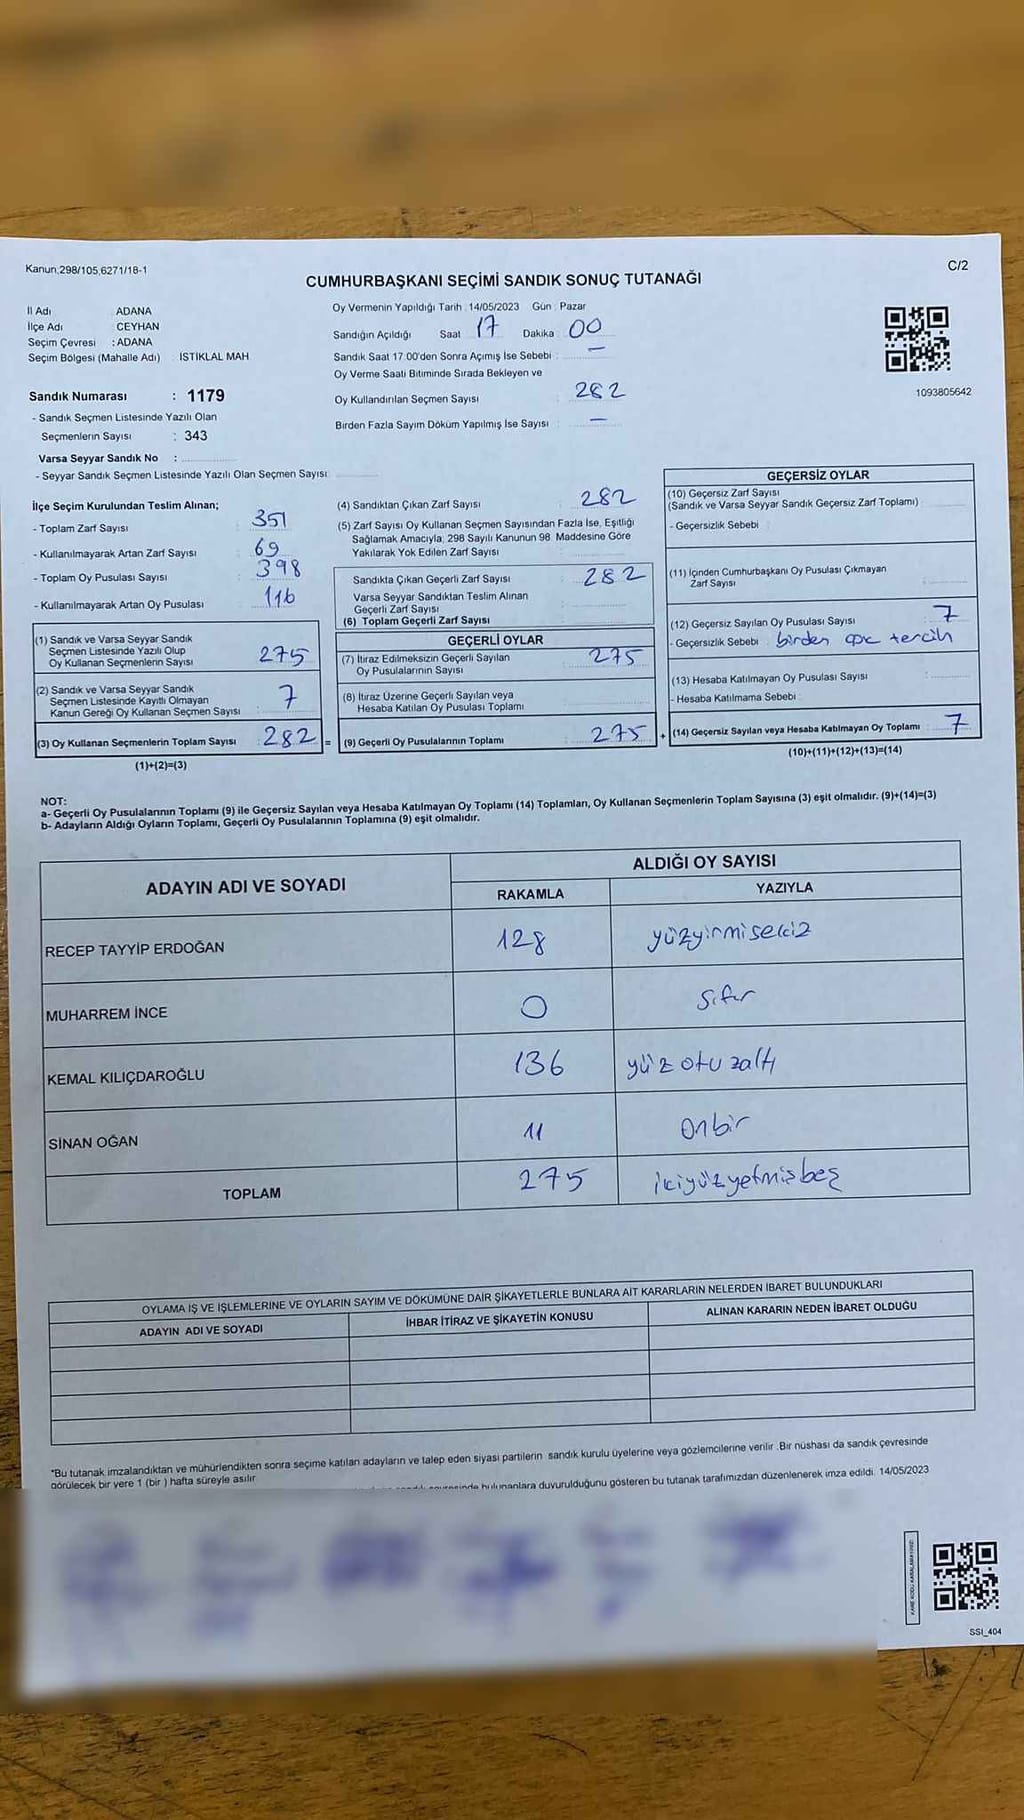 Kanun,298/105,6271/18-1
C/2
CUMHURBAŞKANI SEÇİMİ SANDIK SONUÇ TUTANAĞI
İl Adı ADANA
İlçe Adı CEYHAN
Seçim Çevresi : ADANA
Seçim Bölgesi (Mahalle Adı) : İSTİKLAL MAH
Sandık Numarası : 1179
- Sandık Seçmen Listesinde Yazılı Olan
Seçmenlerin Sayısı : 343
Varsa Seyyar Sandık No :
- Seyyar Sandık Seçmen Listesinde Yazılı Olan Seçmen Sayısı:
Oy Vermenin Yapıldığı Tarih : 14/05/2023 Gün : Pazar
Sandığın Açıldığı Saat 17 Dakika : 00
Sandık Saat 17:00'den Sonra Açımış İse Sebebi : —
Oy Verme Saati Bitiminde Sırada Bekleyen ve
Oy Kullandırılan Seçmen Sayısı : 282
Birden Fazla Sayım Döküm Yapılmış İse Sayısı : —
1093805642
İlçe Seçim Kurulundan Teslim Alınan;
- Toplam Zarf Sayısı : 351
- Kullanılmayarak Artan Zarf Sayısı : 69
- Toplam Oy Pusulası Sayısı : 398
- Kullanılmayarak Artan Oy Pusulası : 116
(1) Sandık ve Varsa Seyyar Sandık
Seçmen Listesinde Yazılı Olup
Oy Kullanan Seçmenlerin Sayısı : 275
(2) Sandık ve Varsa Seyyar Sandık
Seçmen Listesinde Kayıtlı Olmayan
Kanun Gereği Oy Kullanan Seçmen Sayısı : 7
(3) Oy Kullanan Seçmenlerin Toplam Sayısı : 282 =
(1)+(2)=(3)
(4) Sandıktan Çıkan Zarf Sayısı : 282
(5) Zarf Sayısı Oy Kullanan Seçmen Sayısından Fazla İse, Eşitliği
Sağlamak Amacıyla; 298 Sayılı Kanunun 98. Maddesine Göre
Yakılarak Yok Edilen Zarf Sayısı :
Sandıkta Çıkan Geçerli Zarf Sayısı : 282
Varsa Seyyar Sandıktan Teslim Alınan
Geçerli Zarf Sayısı :
(6) Toplam Geçerli Zarf Sayısı :
GEÇERLİ OYLAR
(7) İtiraz Edilmeksizin Geçerli Sayılan
Oy Pusulalarının Sayısı : 275
(8) İtiraz Üzerine Geçerli Sayılan veya
Hesaba Katılan Oy Pusulası Toplamı :
(9) Geçerli Oy Pusulalarının Toplamı : 275 +
GEÇERSİZ OYLAR
(10) Geçersiz Zarf Sayısı
(Sandık ve Varsa Seyyar Sandık Geçersiz Zarf Toplamı) :
- Geçersizlik Sebebi :
(11) İçinden Cumhurbaşkanı Oy Pusulası Çıkmayan
Zarf Sayısı :
(12) Geçersiz Sayılan Oy Pusulası Sayısı : 7
- Geçersizlik Sebebi : birden çok tercih
(13) Hesaba Katılmayan Oy Pusulası Sayısı :
- Hesaba Katılmama Sebebi :
(14) Geçersiz Sayılan veya Hesaba Katılmayan Oy Toplamı : 7
(10)+(11)+(12)+(13)=(14)
NOT:
a- Geçerli Oy Pusulalarının Toplamı (9) ile Geçersiz Sayılan veya Hesaba Katılmayan Oy Toplamı (14) Toplamları, Oy Kullanan Seçmenlerin Toplam Sayısına (3) eşit olmalıdır. (9)+(14)=(3)
b- Adayların Aldığı Oyların Toplamı, Geçerli Oy Pusulalarının Toplamına (9) eşit olmalıdır.
ADAYIN ADI VE SOYADI ALDIĞI OY SAYISI
RAKAMLA YAZIYLA
RECEP TAYYİP ERDOĞAN 128 yüzyirmisekiz
MUHARREM İNCE 0 Sıfır
KEMAL KILIÇDAROĞLU 136 yüz otuzaltı
SİNAN OĞAN 11 Onbir
TOPLAM 275 ikiyüzyetmişbeş
OYLAMA İŞ VE İŞLEMLERİNE VE OYLARIN SAYIM VE DÖKÜMÜNE DAİR ŞİKAYETLERLE BUNLARA AİT KARARLARIN NELERDEN İBARET BULUNDUKLARI
ADAYIN ADI VE SOYADI İHBAR İTİRAZ VE ŞİKAYETİN KONUSU ALINAN KARARIN NEDEN İBARET OLDUĞU
*Bu tutanak imzalandıktan ve mühürlendikten sonra seçime katılan adayların ve talep eden siyasi partilerin sandık kurulu üyelerine veya gözlemcilerine verilir. Bir nüshası da sandık çevresinde
görülecek bir yere 1 (bir ) hafta süreyle asılır.
bulunanlara duyurulduğunu gösteren bu tutanak tarafımızdan düzenlenerek imza edildi. 14/05/2023
SSI_404